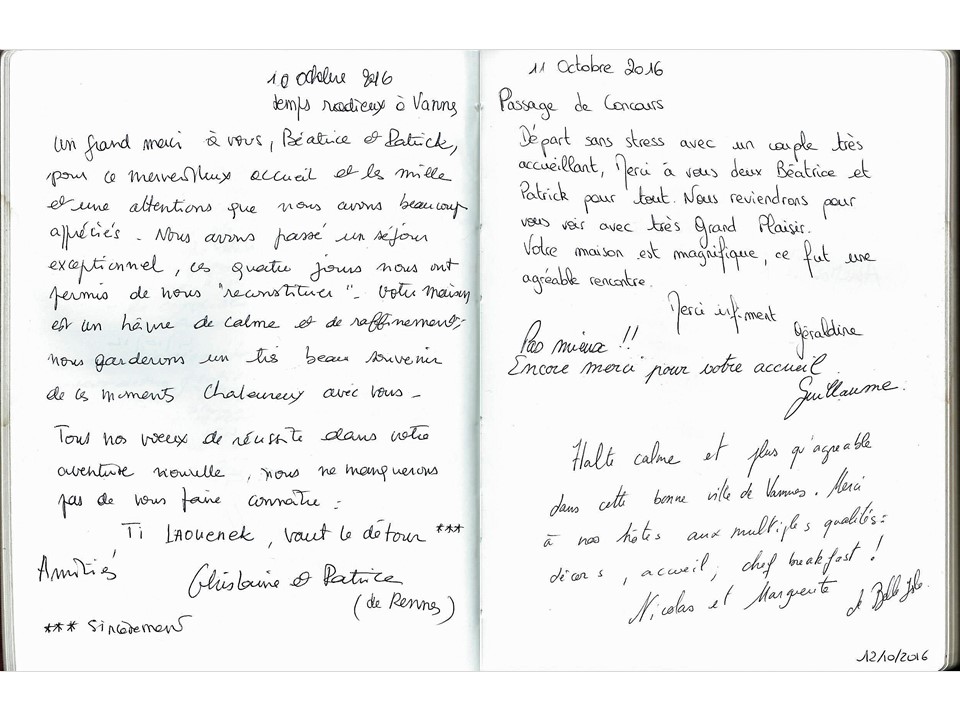 10 octobre 2016
temps radieux à Vannes
Un grand merci à vous, Béatrice et Patrick,
pour ce merveilleux accueil et les mille
et une attentions que nous avons beaucoup
appréciés. Nous avons passé un séjour
exceptionnel, ces quatre jours nous ont
permis de nous "reconstituer". Votre maison
est un hâvre de calme et de raffinement;
nous garderons un très beau souvenir
de ces moments chaleureux avec vous.
Tous nos voeux de réussite dans votre
aventure nouvelle, nous ne manquerons
pas de vous faire connaître :
Ti LAOUENEK, vaut le détour ***
Amitiés
Ghislaine et Patrice
(de Rennes)
*** Sincèrement
11 Octobre 2016
Passage de Concours
Départ sans stress avec un couple très
accueillant, Merci à vous deux Béatrice et
Patrick pour tout. Nous reviendrons pour
vous voir avec très Grand Plaisir.
Votre maison est magnifique, ce fut une
agréable rencontre.
Merci infiment
Géraldine
Pas mieux !!
Encore merci pour votre accueil.
Guillaume.
Halte calme et plus qu'agréable
dans cette bonne ville de Vannes. Merci
à nos hôtes aux multiples qualités :
décors, accueil, chef breakfast !
Nicolas et Marguerite
de Belle Isle.
12/10/2016